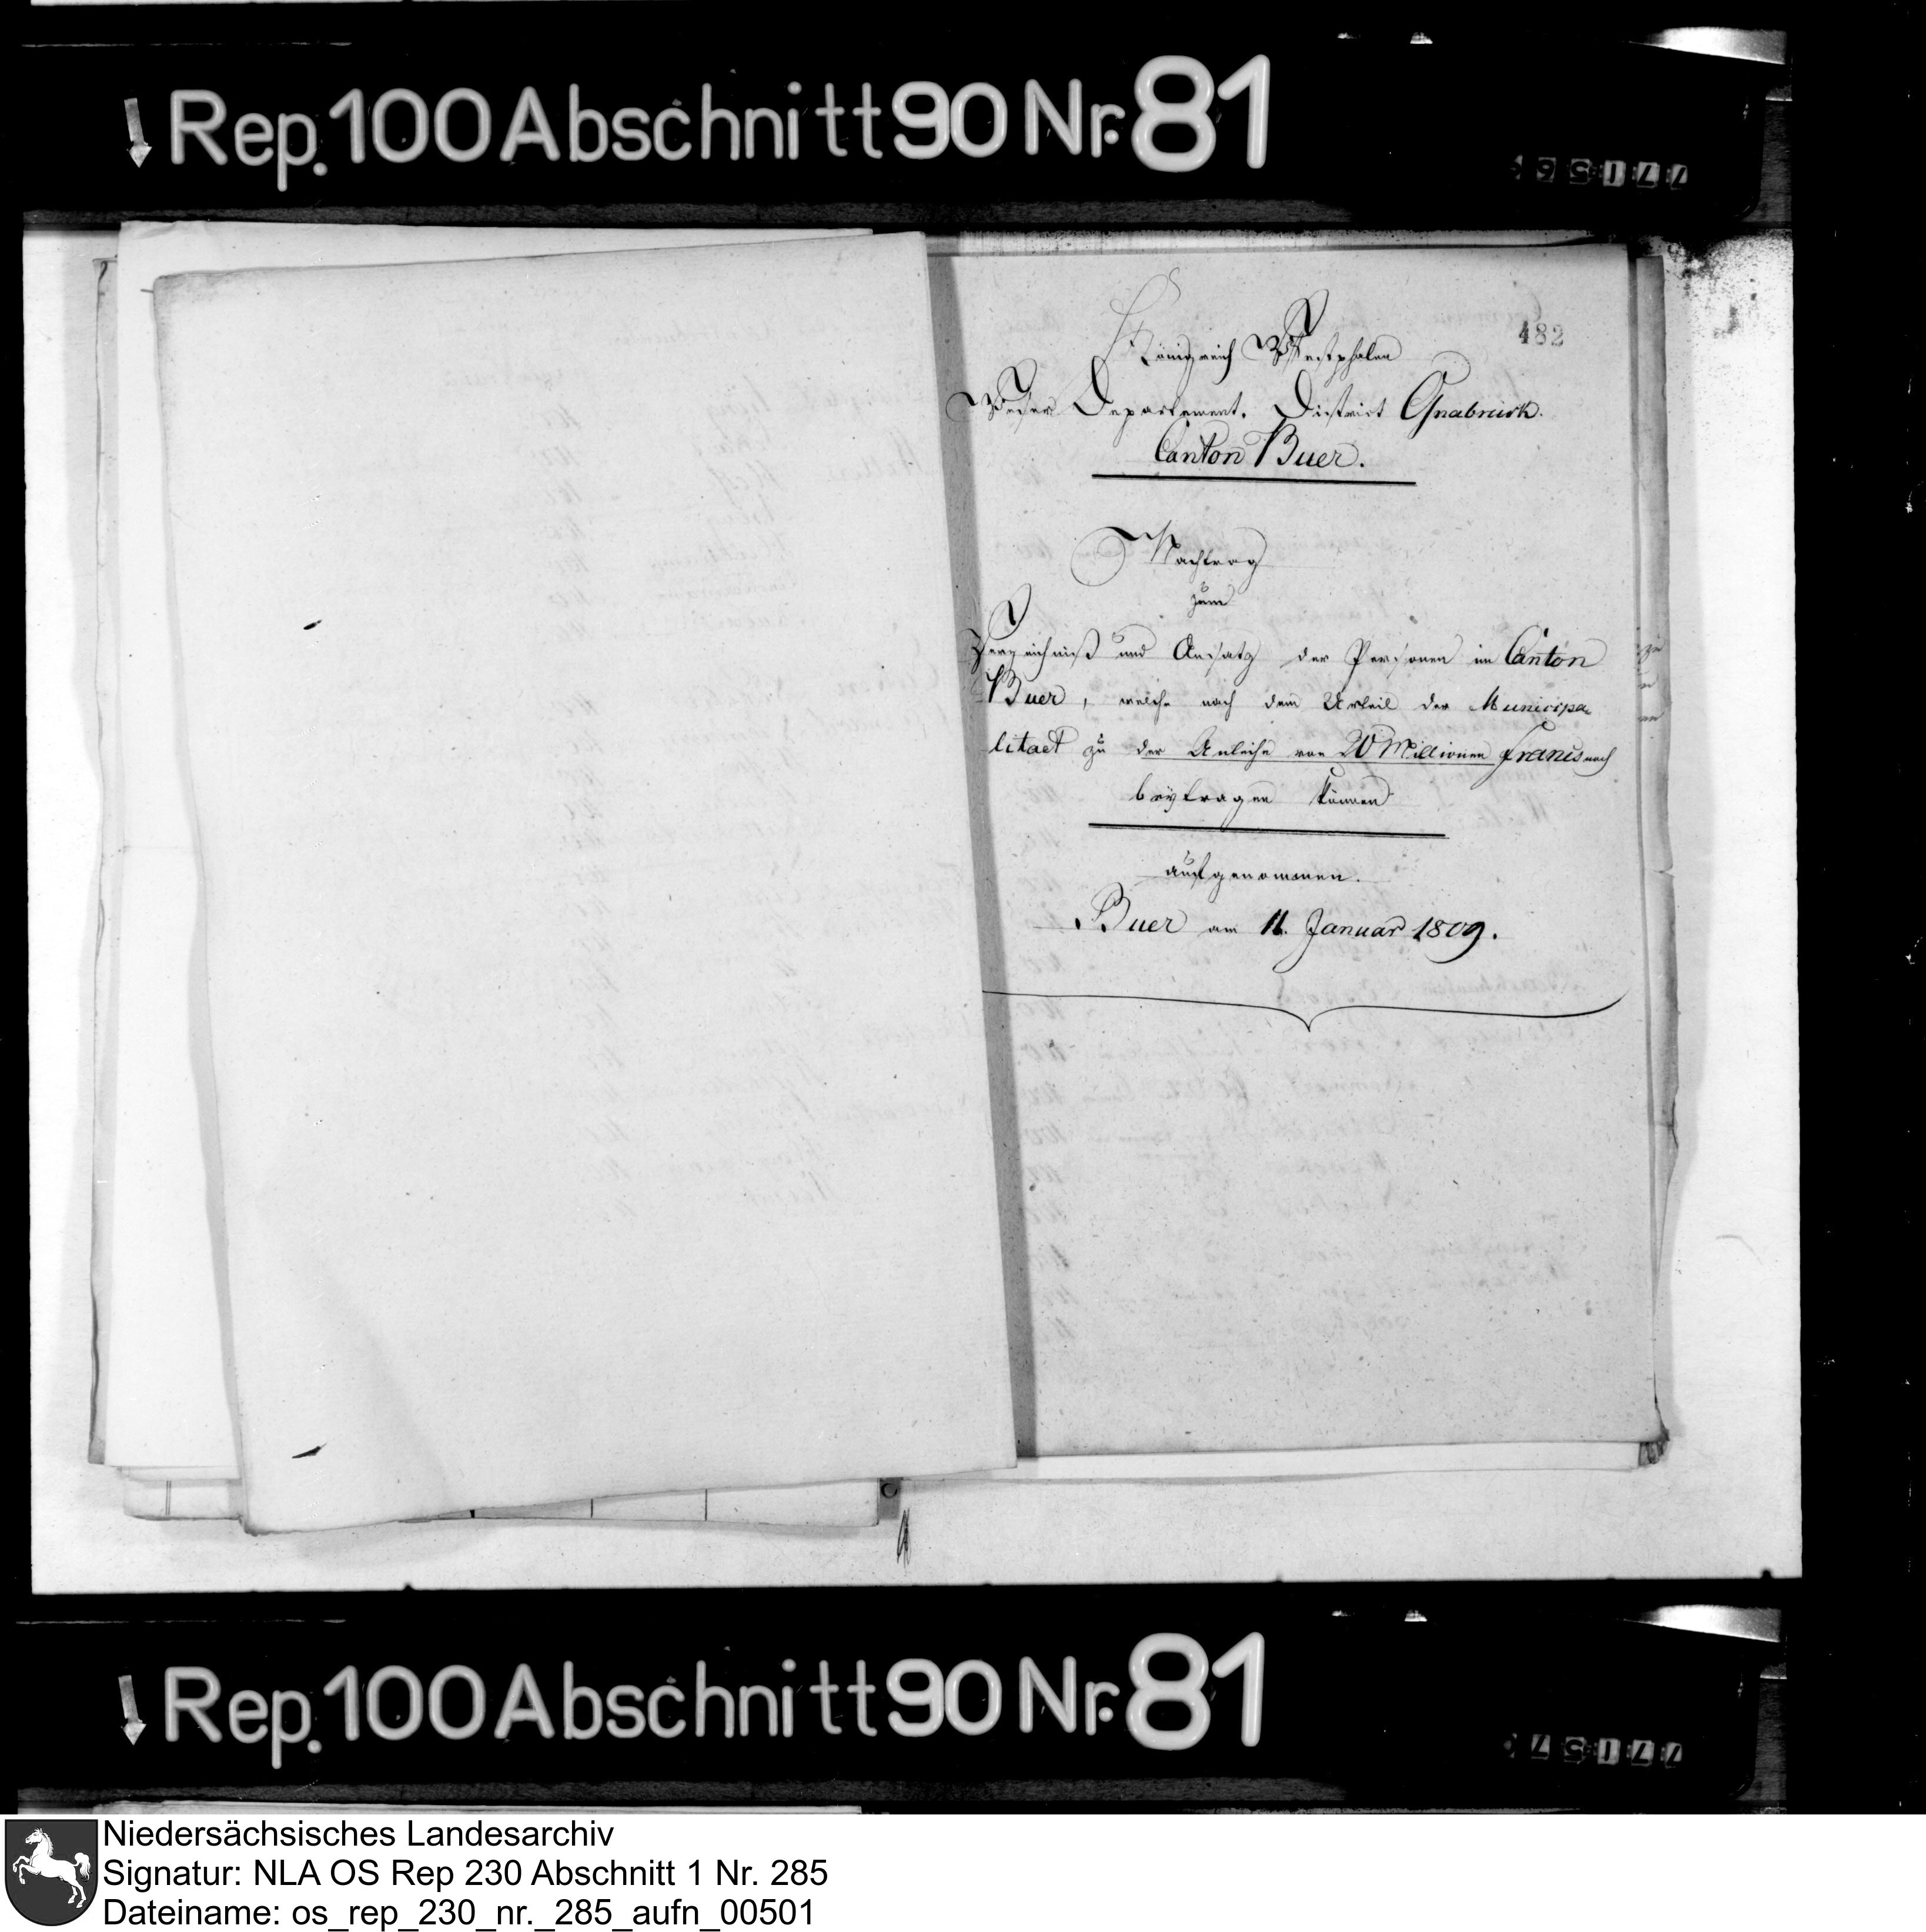 Rep. 100 Abschnitt 90 Nr. 81
482
Königreich Westphalen
Weser Departement. District Osnabrück.
Canton Buer.
Nachtrag
zum
Verzeichniß und Ansatz der Personen im Canton
Buer, welche nach dem Urteil der Municipa
litaet zu der Anleihe von 20 Millionen Francs noch
beytragen können
aufgenommen.
Buer am 11. Januar 1809.
Rep. 100 Abschnitt 90 Nr. 81
Niedersächsisches Landesarchiv
Signatur: NLA OS Rep 230 Abschnitt 1 Nr. 285
Dateiname: os_rep_230_nr._285_aufn_00501